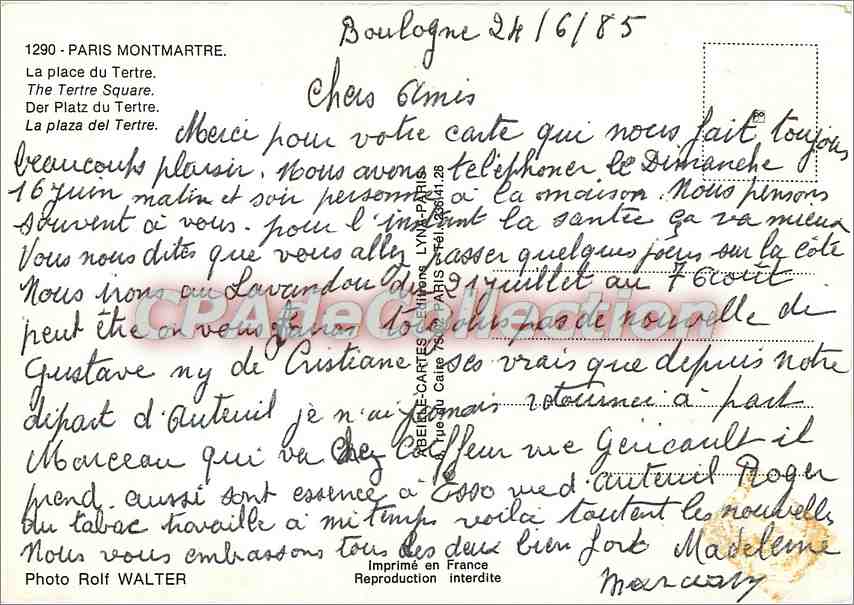 Boulogne 24/6/85
1290 - PARIS MONTMARTRE.
La place du Tertre.
The Tertre Square.
Der Platz du Tertre.
La plaza del Tertre.
Chers Amis
Merci pour votre carte qui nous fait toujours
beaucoups plaisir. Nous avons téléphoner le Dimanche
16 juin matin et soir personne à la maison. Nous pensons
souvent à vous. pour l'instant la santée ça va mieux
Vous nous dites que vous allez passer quelques jours sur la côte
Nous irons au Lavandou du 21 juillet au 7 Août
peut être on vous pas de nouvelle de
Gustave ny de Cristiane ses vrais que depuis notre
départ d'Auteuil je n'ai jamais retournei à part
Marceau qui va chez Coiffeur rue Géricault il
prend aussi sont essence à Esso rue d'Auteuil Roger
du tabac travaille à mi temps voilà toutent les nouvelles
Nous vous embrassons tous les deux bien fort Madeleine
ABEILLE-CARTES - Editions LYNA-PARIS
rue du Caire PARIS - Tél. 236.41.28
CPAdeCollection
Photo Rolf WALTER
Imprimé en France
Reproduction interdite